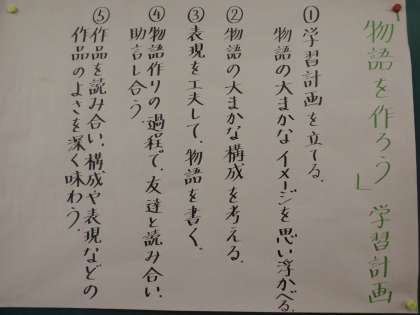 物語を作ろう」学習計画
①学習計画を立てる。
物語の大まかなイメージを思い浮かべる。
②物語の大まかな構成を考える。
③表現を工夫して、物語を書く。
④物語作りの過程で、友達と読み合い、
助言し合う。
⑤作品を読み合い、構成や表現などの
作品のよさを深く味わう。